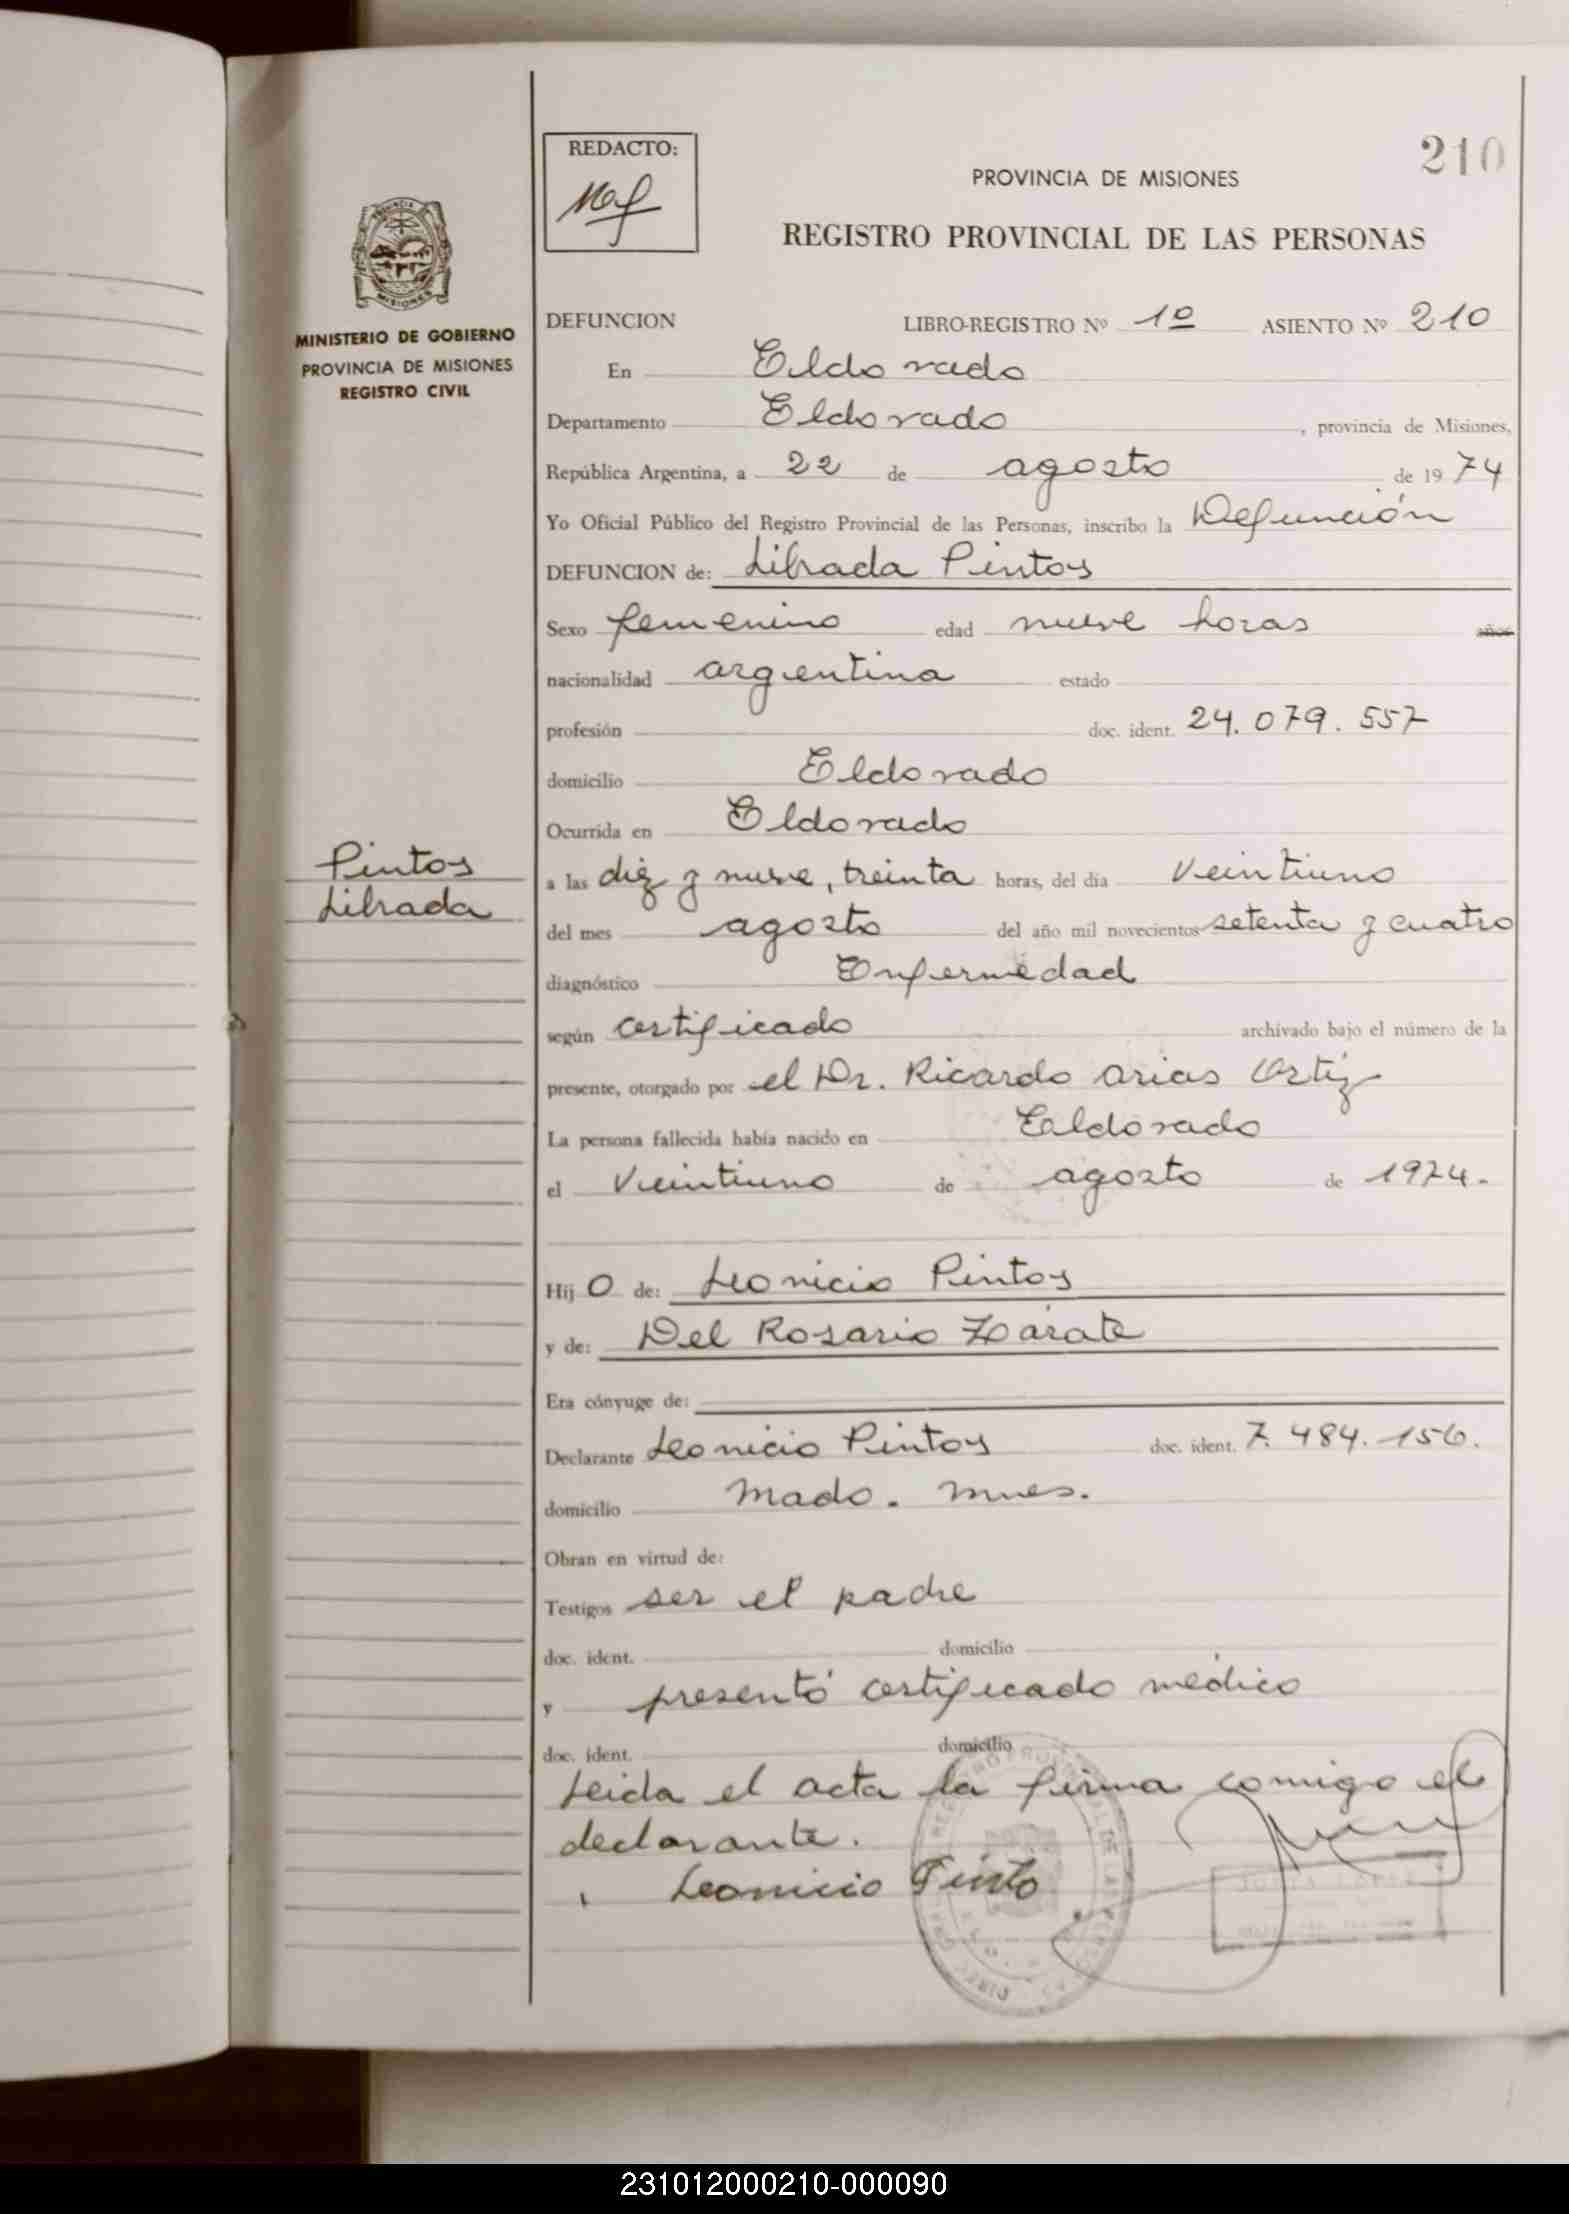 210
REDACTO:
PROVINCIA DE MISIONES
REGISTRO PROVINCIAL DE LAS PERSONAS
MINISTERIO DE GOBIERNO
PROVINCIA DE MISIONES
REGISTRO CIVIL
DEFUNCION LIBRO-REGISTRO Nº 1º ASIENTO Nº 210
En Eldorado
Departamento Eldorado, provincia de Misiones,
República Argentina, a 22 de agosto de 1974
Yo Oficial Público del Registro Provincial de las Personas, inscribo la Defunción
DEFUNCION de: Librada Pintos
Sexo femenino edad nueve horas años
nacionalidad argentina estado
profesión doc. ident. 24.079.557
domicilio Eldorado
Ocurrida en Eldorado
Pintos
Librada
a las diez y nueve, treinta horas, del día veintiuno
del mes agosto del año mil novecientos setenta y cuatro
diagnóstico Enfermedad
según certificado archivado bajo el número de la
presente, otorgado por el Dr. Ricardo Arias Ortiz
La persona fallecida había nacido en Eldorado
el veintiuno de agosto de 1974.
Hij o de: Leonicio Pintos
y de: Del Rosario Zárate
Era cónyuge de:
Declarante Leonicio Pintos doc. ident. 7.484.156.
domicilio Mado. Mnes.
Obran en virtud de:
Testigos ser el padre
doc. ident. domicilio
y presentó certificado médico
doc. ident. domicilio
Leida el acta la firma comigo el
declarante.
Leonicio Pinto
231012000210-000090